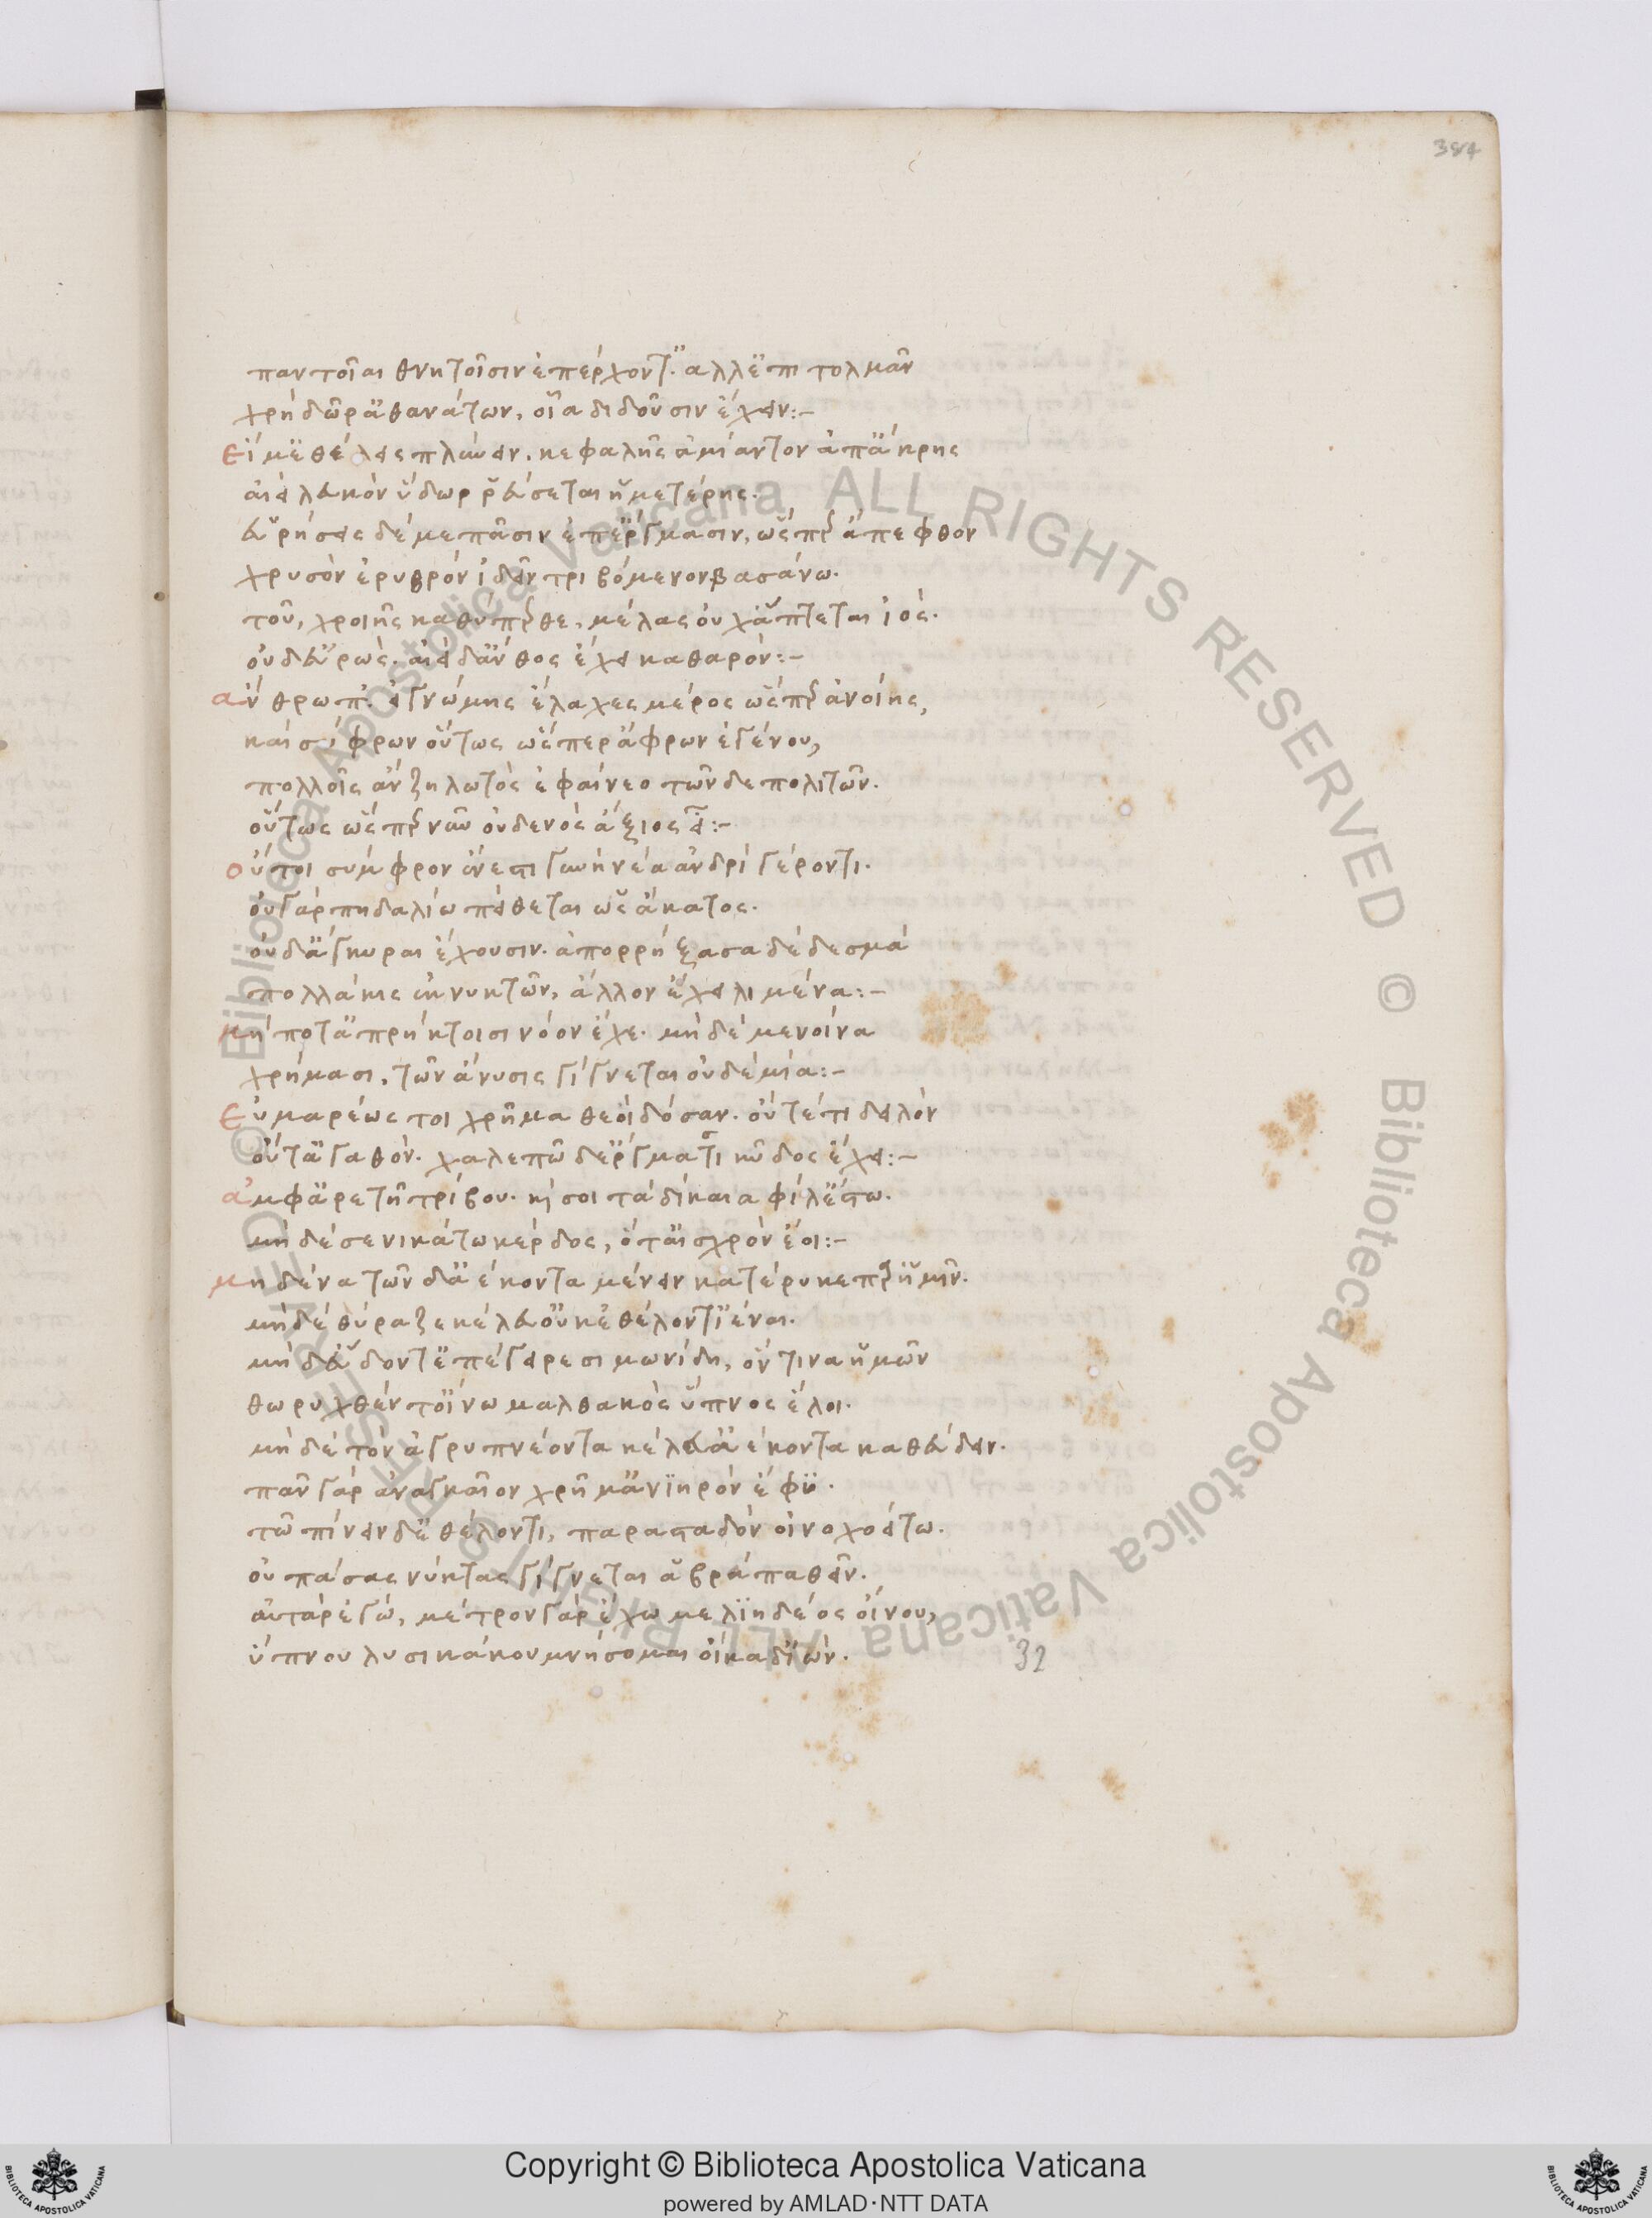 384
παντοῖαι θνητοῖσιν ἐπέρχοντ'. ἀλλ' ἐπιτολμᾶν
χρὴ δῶρ' ἀθανάτων, οἷα διδοῦσιν ἔχειν:–
Εἴ μ' ἐθέλεις πλώειν. κεφαλῆς ἀμίαντον ἀπ' ἄκρης
αἰεὶ λευκὸν ὕδωρ ῥεύσεται ἡμετέρης.
εὑρήσεις δέ με πᾶσιν ἐπ' ἔργμασιν, ὥσπερ ἄπεφθον
χρυσὸν ἐρυθρὸν ἰδεῖν τριβόμενον βασάνω.
τοῦ, χροιῆς καθύπερθε, μέλας οὐχ ἅπτεται ἰός.
οὐδ' εὐρώς. αἰεὶ δ' ἄνθος ἔχει καθαρόν:–
ἄνθρωπ'. εἰ γνώμης ἔλαχες μέρος ὥσπερ ἀνοίης,
καὶ σώφρων οὕτως ὥσπερ ἄφρων ἐγένου,
πολλοῖς ἂν ζηλωτὸς ἐφαίνεο τῶνδε πολιτῶν.
οὕτως ὥσπερ νῦν οὐδενὸς ἄξιος εἶ:–
οὔτοι σύμφρον ἔνεστι γυνὴ νέα ἀνδρὶ γέροντι.
οὐ γὰρ πηδαλίω πείθεται ὡς ἄκατος.
οὐδ' ἄγκυραι ἔχουσιν. ἀπορρήξασα δὲ δεσμὰ
πολλάκις ἐκ νυκτῶν, ἄλλον ἔχει λιμένα:–
μήποτ' ἀπρήκτοισι νόον ἔχε. μηδὲ μενοίνα
χρήμασι. τῶν ἄνυσις γίγνεται οὐδεμία:–
Εὐμαρέως τοι χρῆμα θεοὶ δόσαν. οὔτέ τι δειλὸν
οὔτ' ἀγαθόν. χαλεπῶ δ' ἔργματι κῦδος ἔχει:–
ἀμφ' ἀρετῆ τρίβου. καί σοι τὰ δίκαια φίλ' ἔστω.
μηδέ σε νικάτω κέρδος, ὅτ' αἰσχρὸν ἔοι:–
μηδένα τῶνδ' ἀέκοντα μένειν κατέρυκε παρ' ἡμῖν.
μηδὲ θύραζε κέλευ' οὐκ ἐθέλοντ' ἰέναι.
μηδ' εὕδοντ' ἐπέγειρε σιμωνίδη, ὅντινα ἡμῶν
θωρυχθέντ' οἴνω μαλθακὸς ὕπνος ἕλοι.
μηδὲ τὸν ἀγρυπνέοντα κέλευ' ἀέκοντα καθεύδειν.
πᾶν γὰρ ἀναγκαῖον χρῆμ' ἀνιηρὸν ἔφυ.
τῶ πίνειν δ' ἐθέλοντι, παρασταδὸν οἰνοχοείτω.
οὐ πάσας νύκτας γίγνεται ἁβρὰ παθεῖν.
αὐτὰρ ἐγώ, μέτρον γὰρ ἔχω μελιηδέος οἴνου,
ὕπνου λυσικάκου μνήσομαι οἴκαδ' ἰών.
32
© Biblioteca Apostolica Vaticana ALL RIGHTS RESERVED © Biblioteca Apostolica Vaticana ALL RIGHTS RESERVED
Copyright © Biblioteca Apostolica Vaticana
powered by AMLAD·NTT DATA
BIBLIOTECA APOSTOLICA VATICANA
BIBLIOTECA APOSTOLICA VATICANA